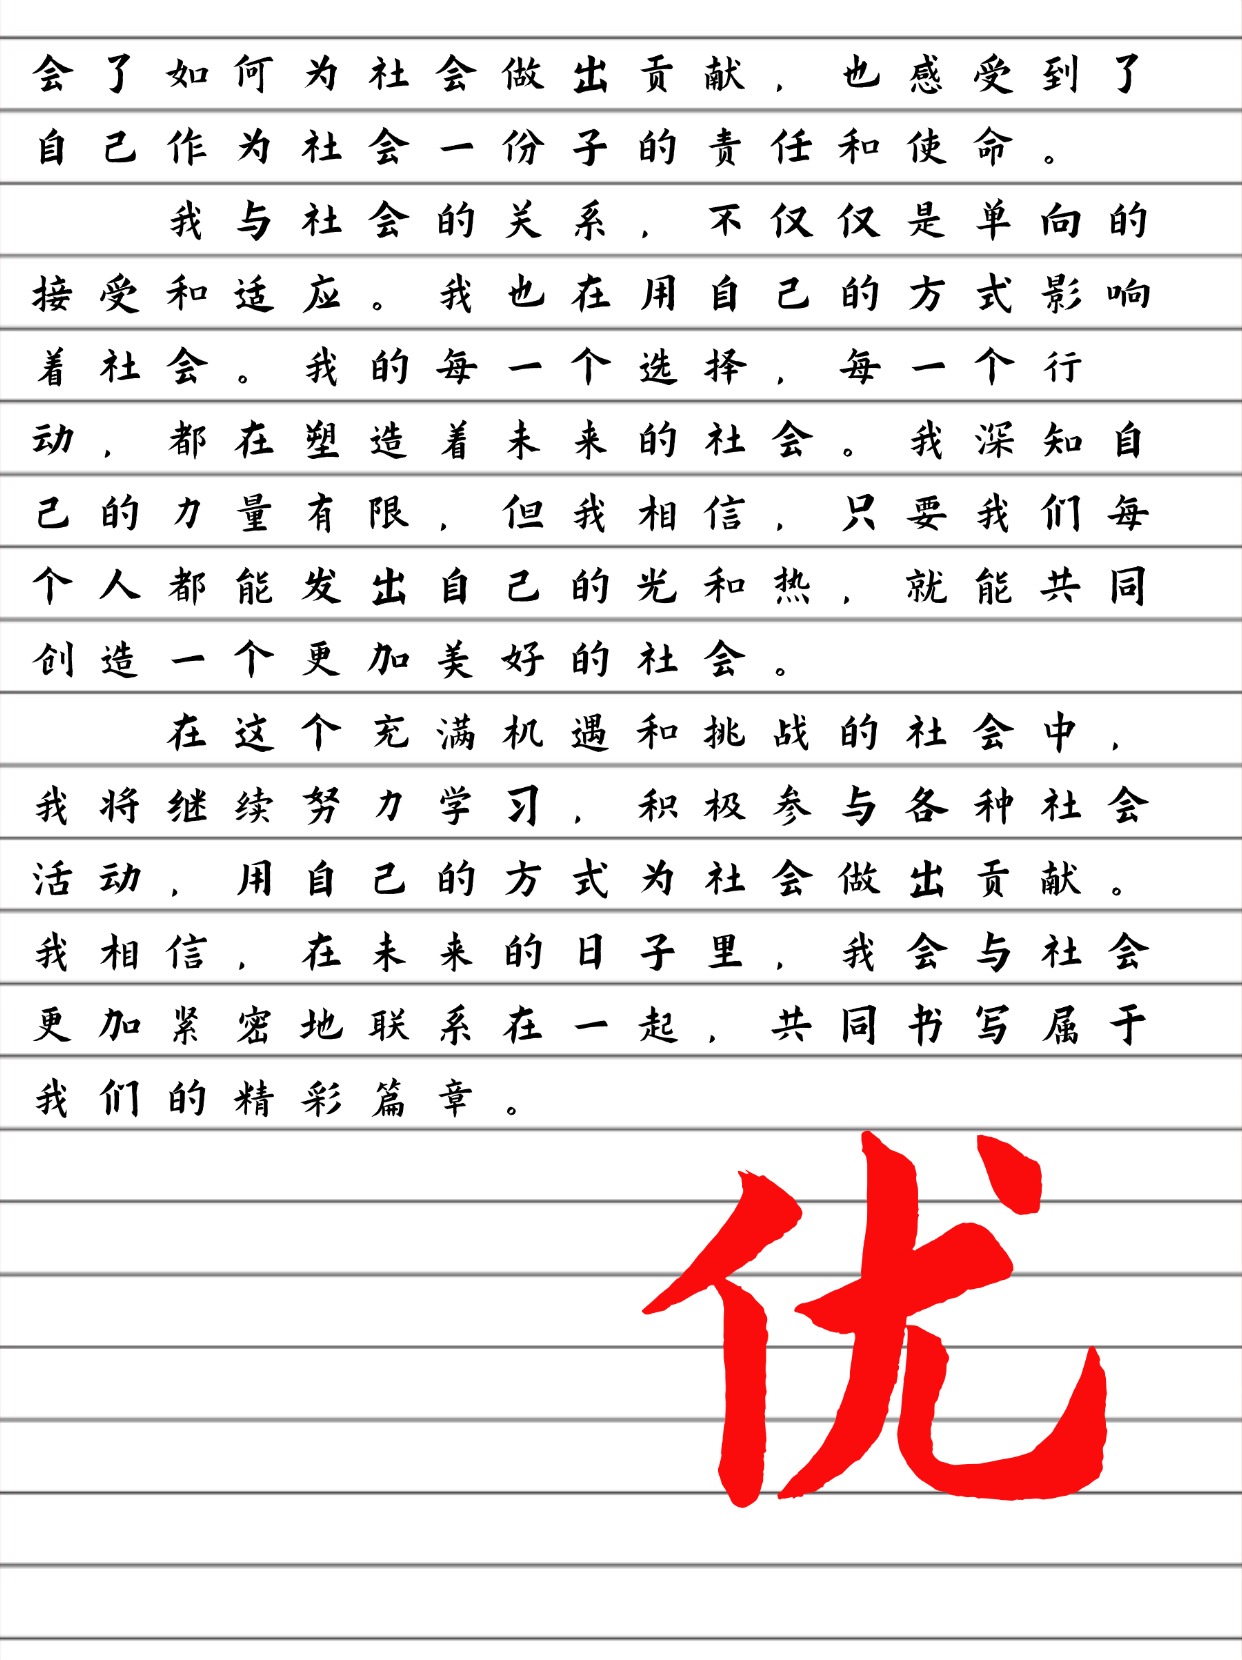 会了如何为社会做出贡献，也感受到了
自己作为社会一份子的责任和使命。
我与社会的关系，不仅仅是单向的
接受和适应。我也在用自己的方式影响
着社会。我的每一个选择，每一个行
动，都在塑造着未来的社会。我深知自
己的力量有限，但我相信，只要我们每
个人都能发出自己的光和热，就能共同
创造一个更加美好的社会。
在这个充满机遇和挑战的社会中，
我将继续努力学习，积极参与各种社会
活动，用自己的方式为社会做出贡献。
我相信，在未来的日子里，我会与社会
更加紧密地联系在一起，共同书写属于
我们的精彩篇章。
优